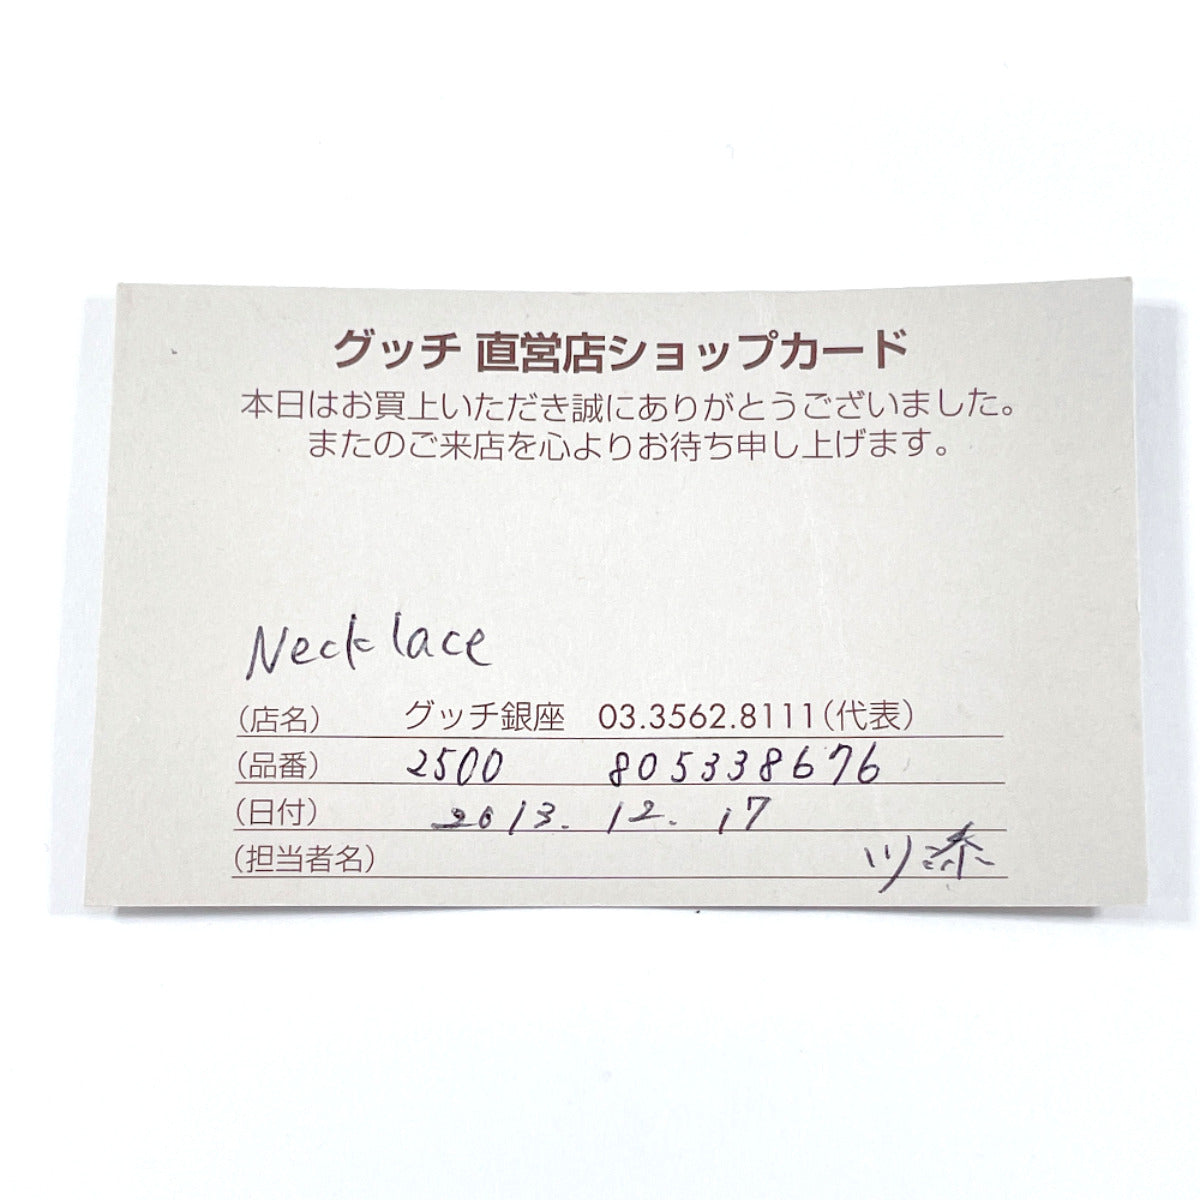 グッチ 直営店ショップカード
本日はお買上いただき誠にありがとうございました。
またのご来店を心よりお待ち申し上げます。
Necklace
(店名) グッチ銀座 03.3562.8111(代表)
(品番) 2500 805338676
(日付) 2013. 12. 17
(担当者名) 川添